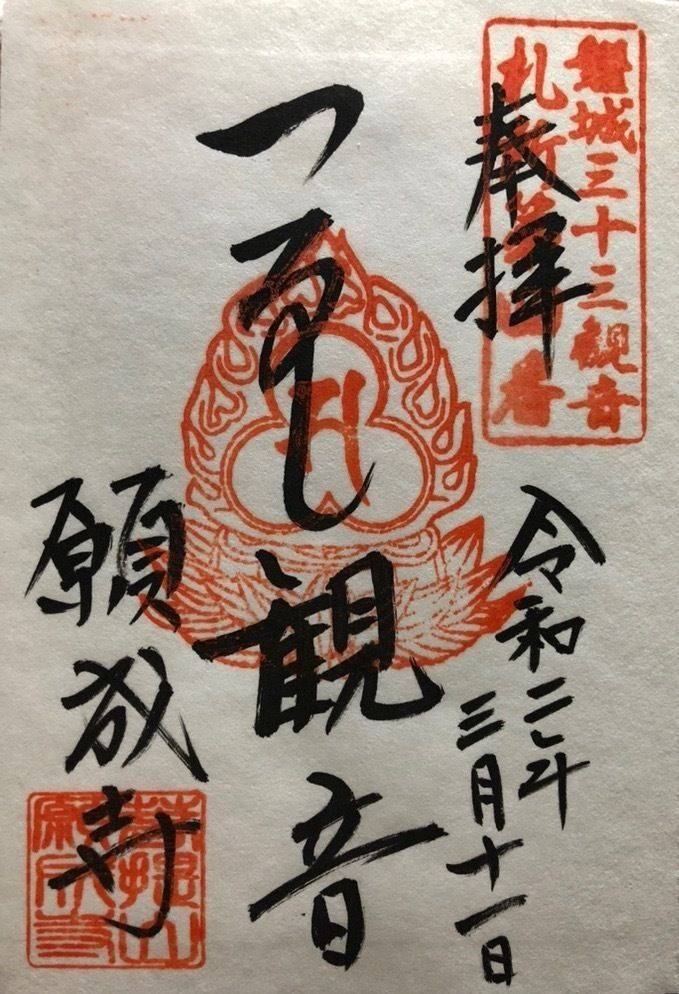 磐城三十三観音
札所第番
奉拝
令和二年
三月十一日
観音
願成寺
菩提山
願成寺